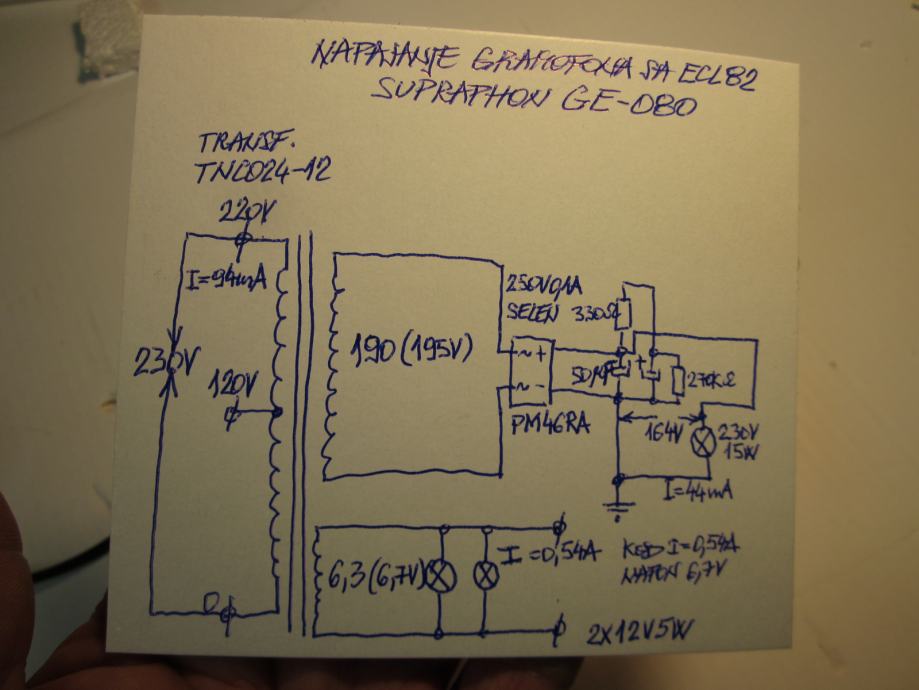 NAPAJANJE GRAMOFONA SA ECL82
SUPRAPHON GE-080
TRANSF.
TNC024-12
220V
I=94mA
230V
120V
0
190 (195V)
250V0,1A
SELEN 330Ω
~ +
~ -
PM46RA
50µF
+
270KΩ
164V
230V
15W
I=44mA
6,3 (6,7V)
I=0,54A
KOD I=0,54A
NAPON 6,7V
2X12V5W